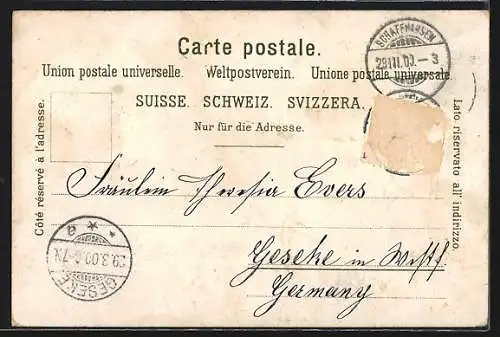 Carte postale.
Union postale universelle. Weltpostverein. Unione postale universale.
SUISSE. SCHWEIZ. SVIZZERA.
Nur für die Adresse.
Côté réservé à l'adresse.
Lato riservato all' indirizzo.
SCHAFFHAUSEN
28 III.00.–3
Fräulein Theresia Evers
Geseke in Westf.
Germany
GESEKE
29.3.00. 6-7N
* * a